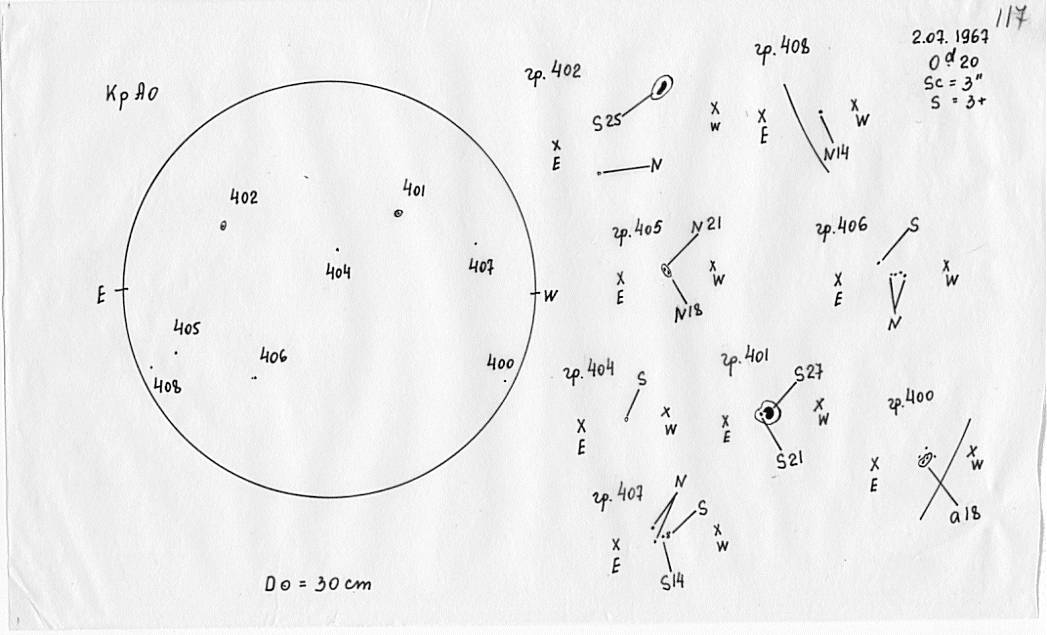 117
2.07.1967
0d20
Sc = 3"
S = 3+
Кр АО
402
401
404
407
E
W
405
406
400
408
D⊙ = 30 cm
гр. 402
S25
X
E
X
W
N
гр. 408
X
E
X
W
N14
гр. 405
N21
X
E
X
W
N18
гр. 406
S
X
E
X
W
N
гр. 404
S
X
E
X
W
гр. 401
S27
X
E
X
W
S21
гр. 400
X
E
X
W
a18
гр. 407
N
S
X
E
X
W
S14